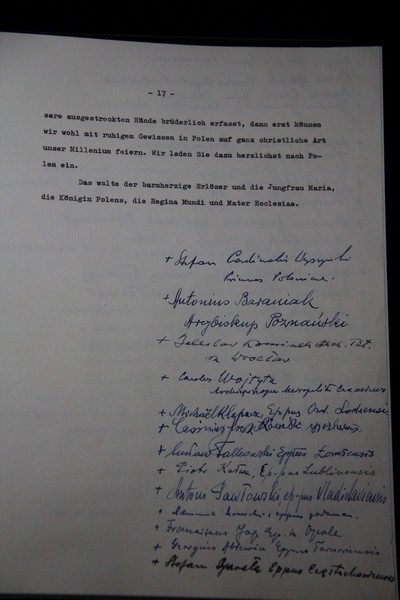 - 17 -
sere ausgestreckten Hände brüderlich erfasst, dann erst können
wir wohl mit ruhigen Gewissen in Polen auf ganz christliche Art
unser Millenium feiern. Wir laden Sie dazu herzlichst nach Po-
len ein.
Das walte der barmherzige Erlöser und die Jungfrau Maria,
die Königin Polens, die Regina Mundi und Mater Ecclesiae.
+ Stefan Cardinalis Wyszyński
Primas Poloniae.
+ Antonius Baraniak
Arcybiskup Poznański
+ Bolesław Kominek
Wrocław
+ Carolus Wojtyła
+ Michael Klepacz, Eppus
+ Czesław Falkowski Eppus Lomzensis
+ Piotr Kałwa, Eppus Lublinensis
+ Antoni Pawłowski, eppus Vladislaviensis
+ Franciszek Jop Ep. Opole
+ Eppus
+ Stefan Bareła Eppus Częstochoviensis